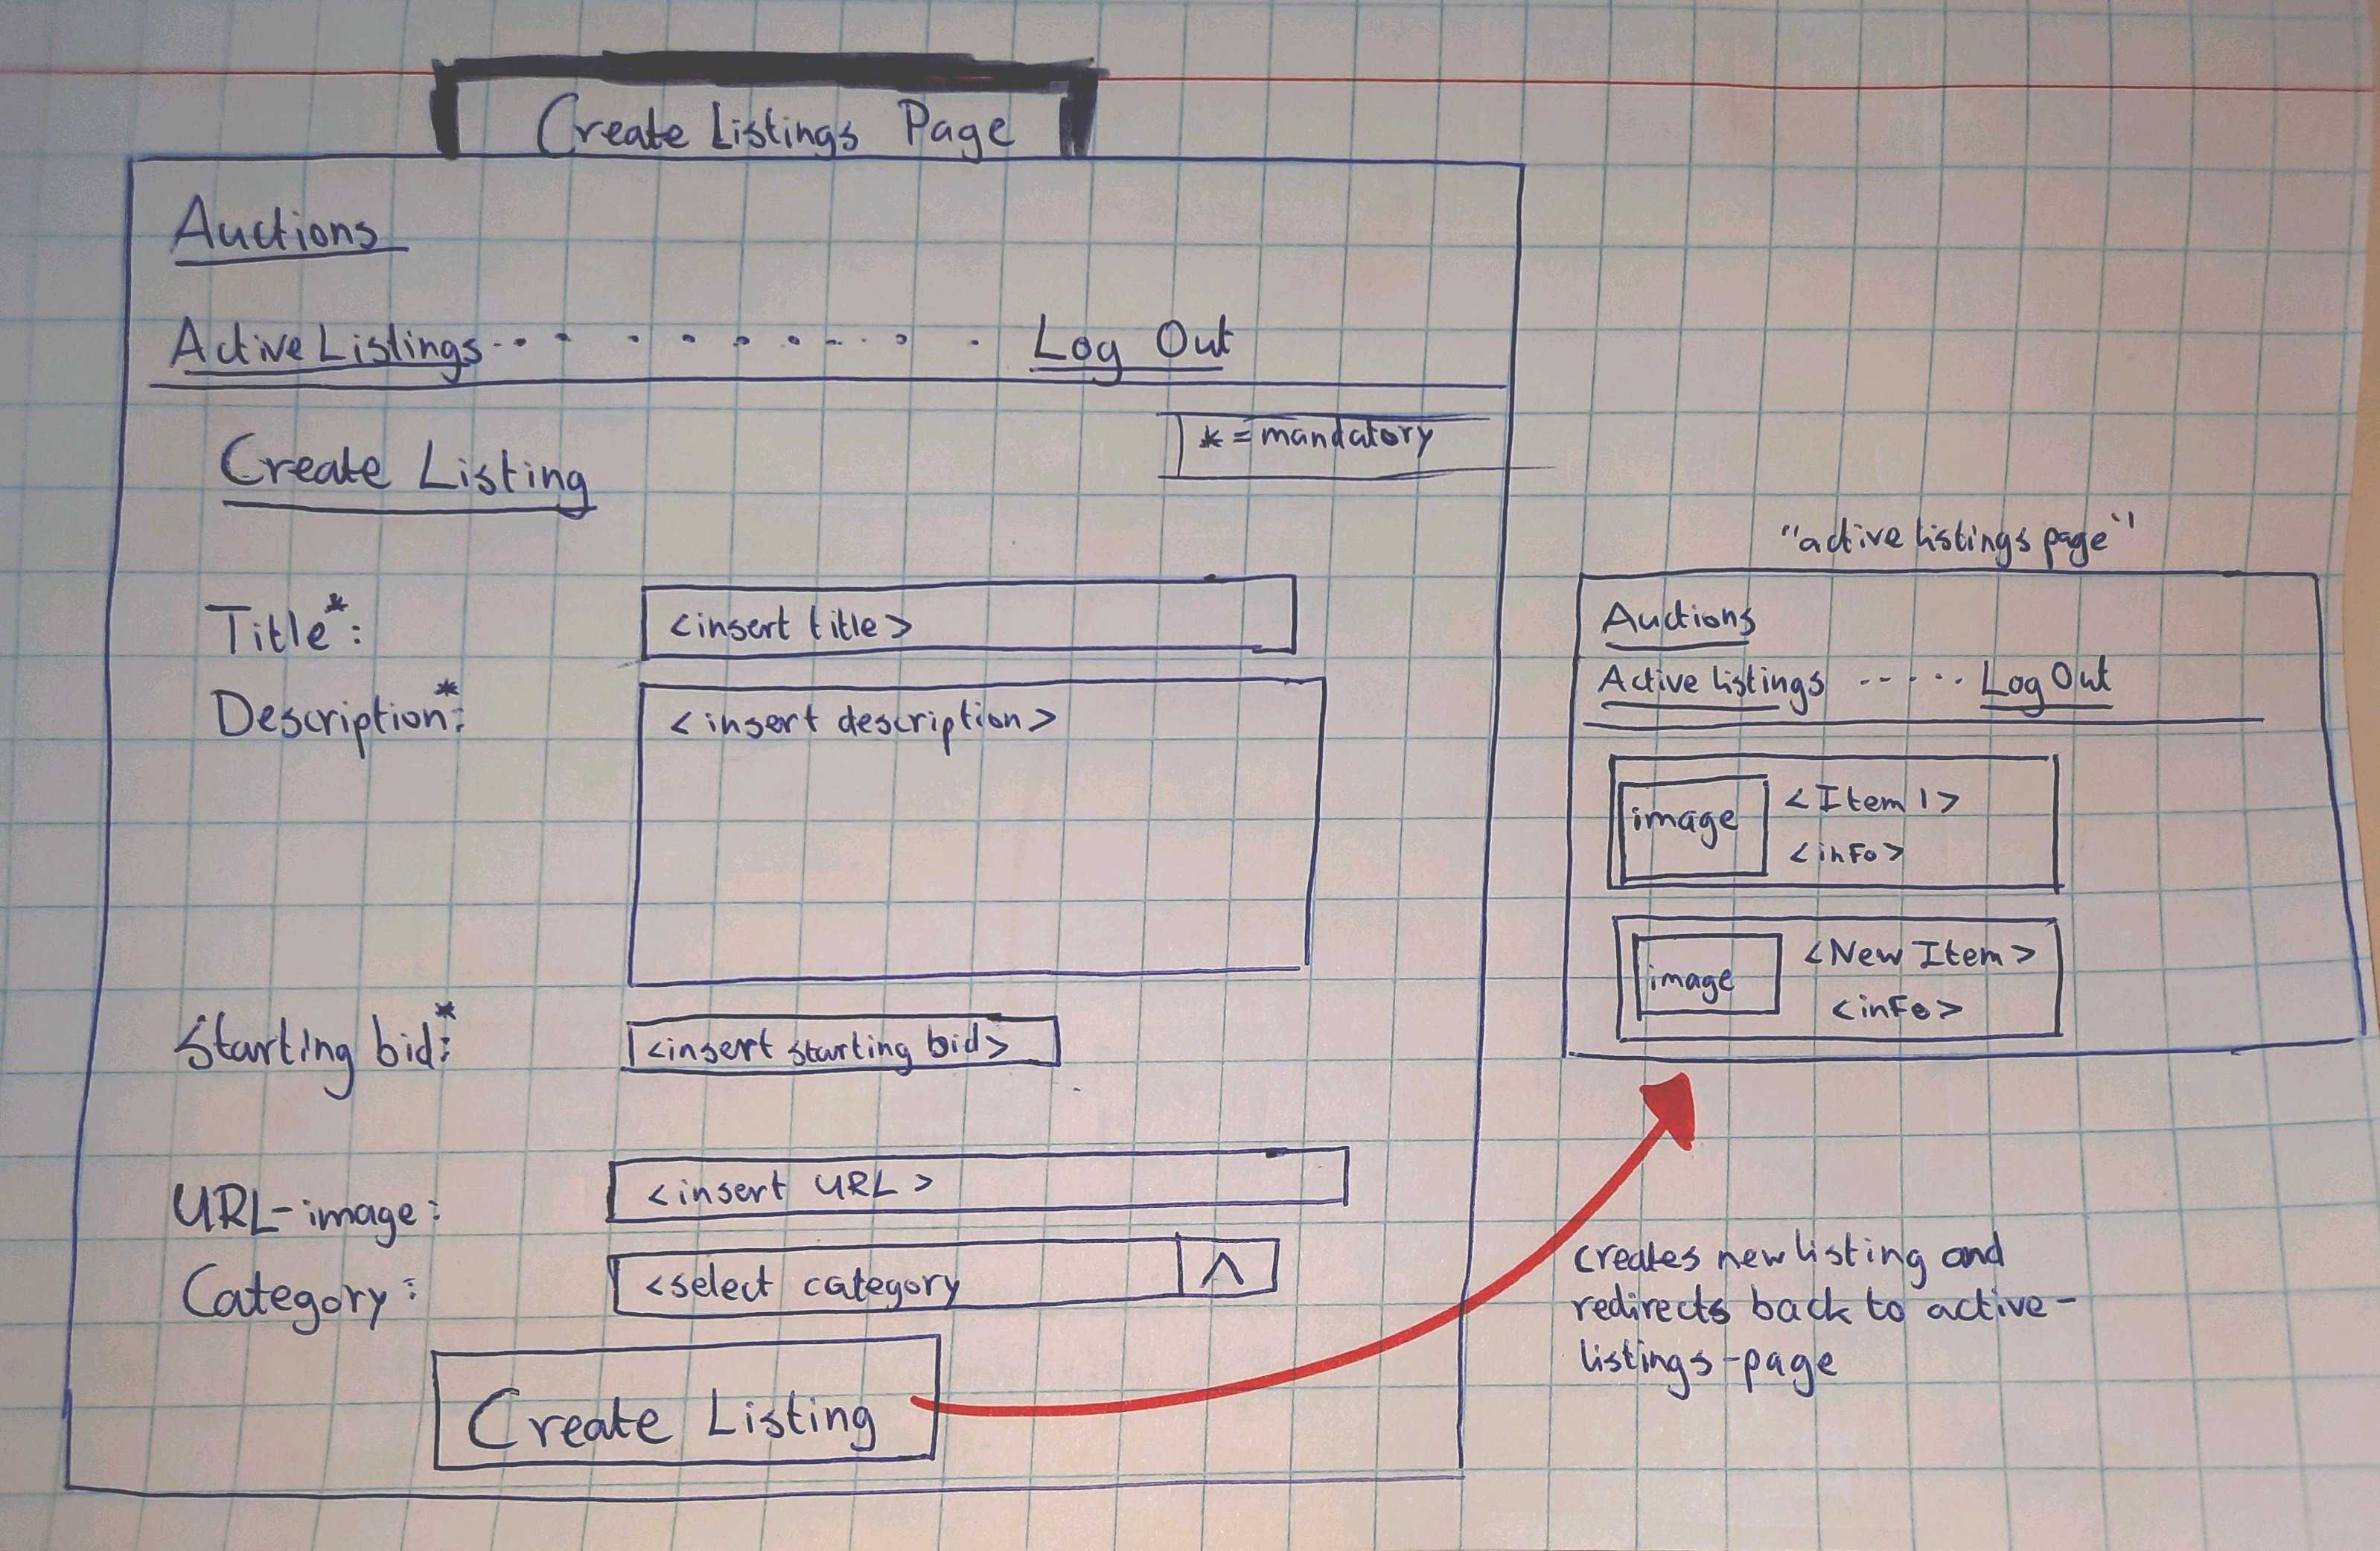 Create Listings Page
Auctions
Active Listings Log Out
* = mandatory
Create Listing
Title*: <insert title>
Description*: <insert description>
Starting bid*: <insert starting bid>
URL-image: <insert URL>
Category: <select category
Create Listing
"active listings page"
Auctions
Active listings ----- Log Out
image <Item 1>
<info>
image <New Item>
<info>
creates new listing and
redirects back to active-
listings-page